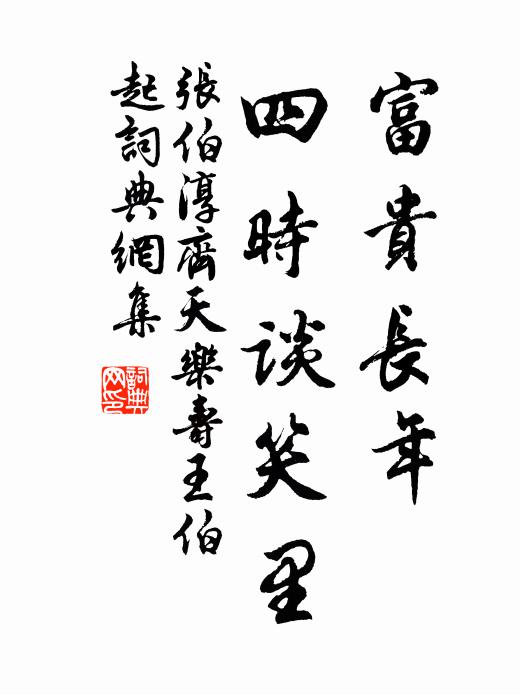 富貴長年
四時談笑里
張伯淳齊天樂壽王伯
起詞典網集
詞典網印